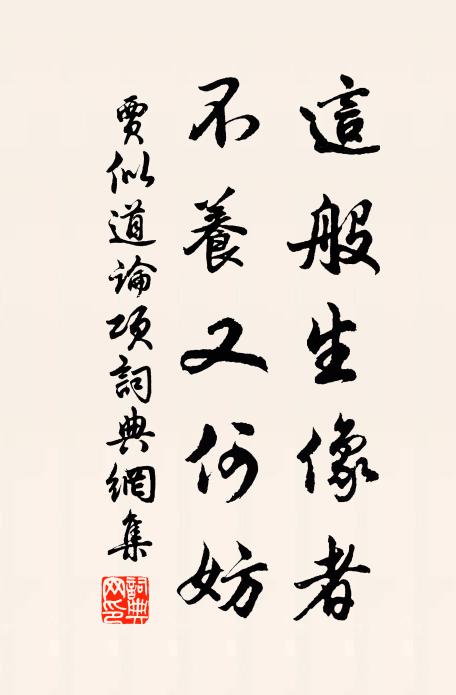 這般生像者
不養又何妨
賈似道論項詞典網集
詞典網印